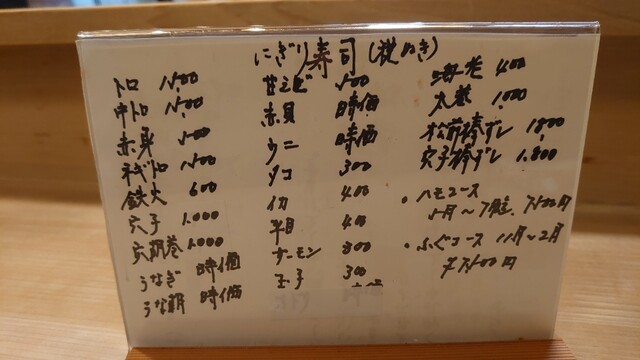 にぎり寿司(税ぬき)
トロ 1,500
中トロ 1,500
赤身 500
ネギトロ 1,500
鉄火 600
穴子 1,000
穴胡巻 1,000
うなぎ 時価
うな胡 時価
甘エビ 500
赤貝 時価
ウニ 時価
タコ 300
イカ 400
平目 400
サーモン 300
玉子 300
海老 400
太巻 1,000
松前棒ずし 1,800
穴子棒ずし 1,800
・ハモコース
5月〜7月
・ふぐコース 11月〜2月